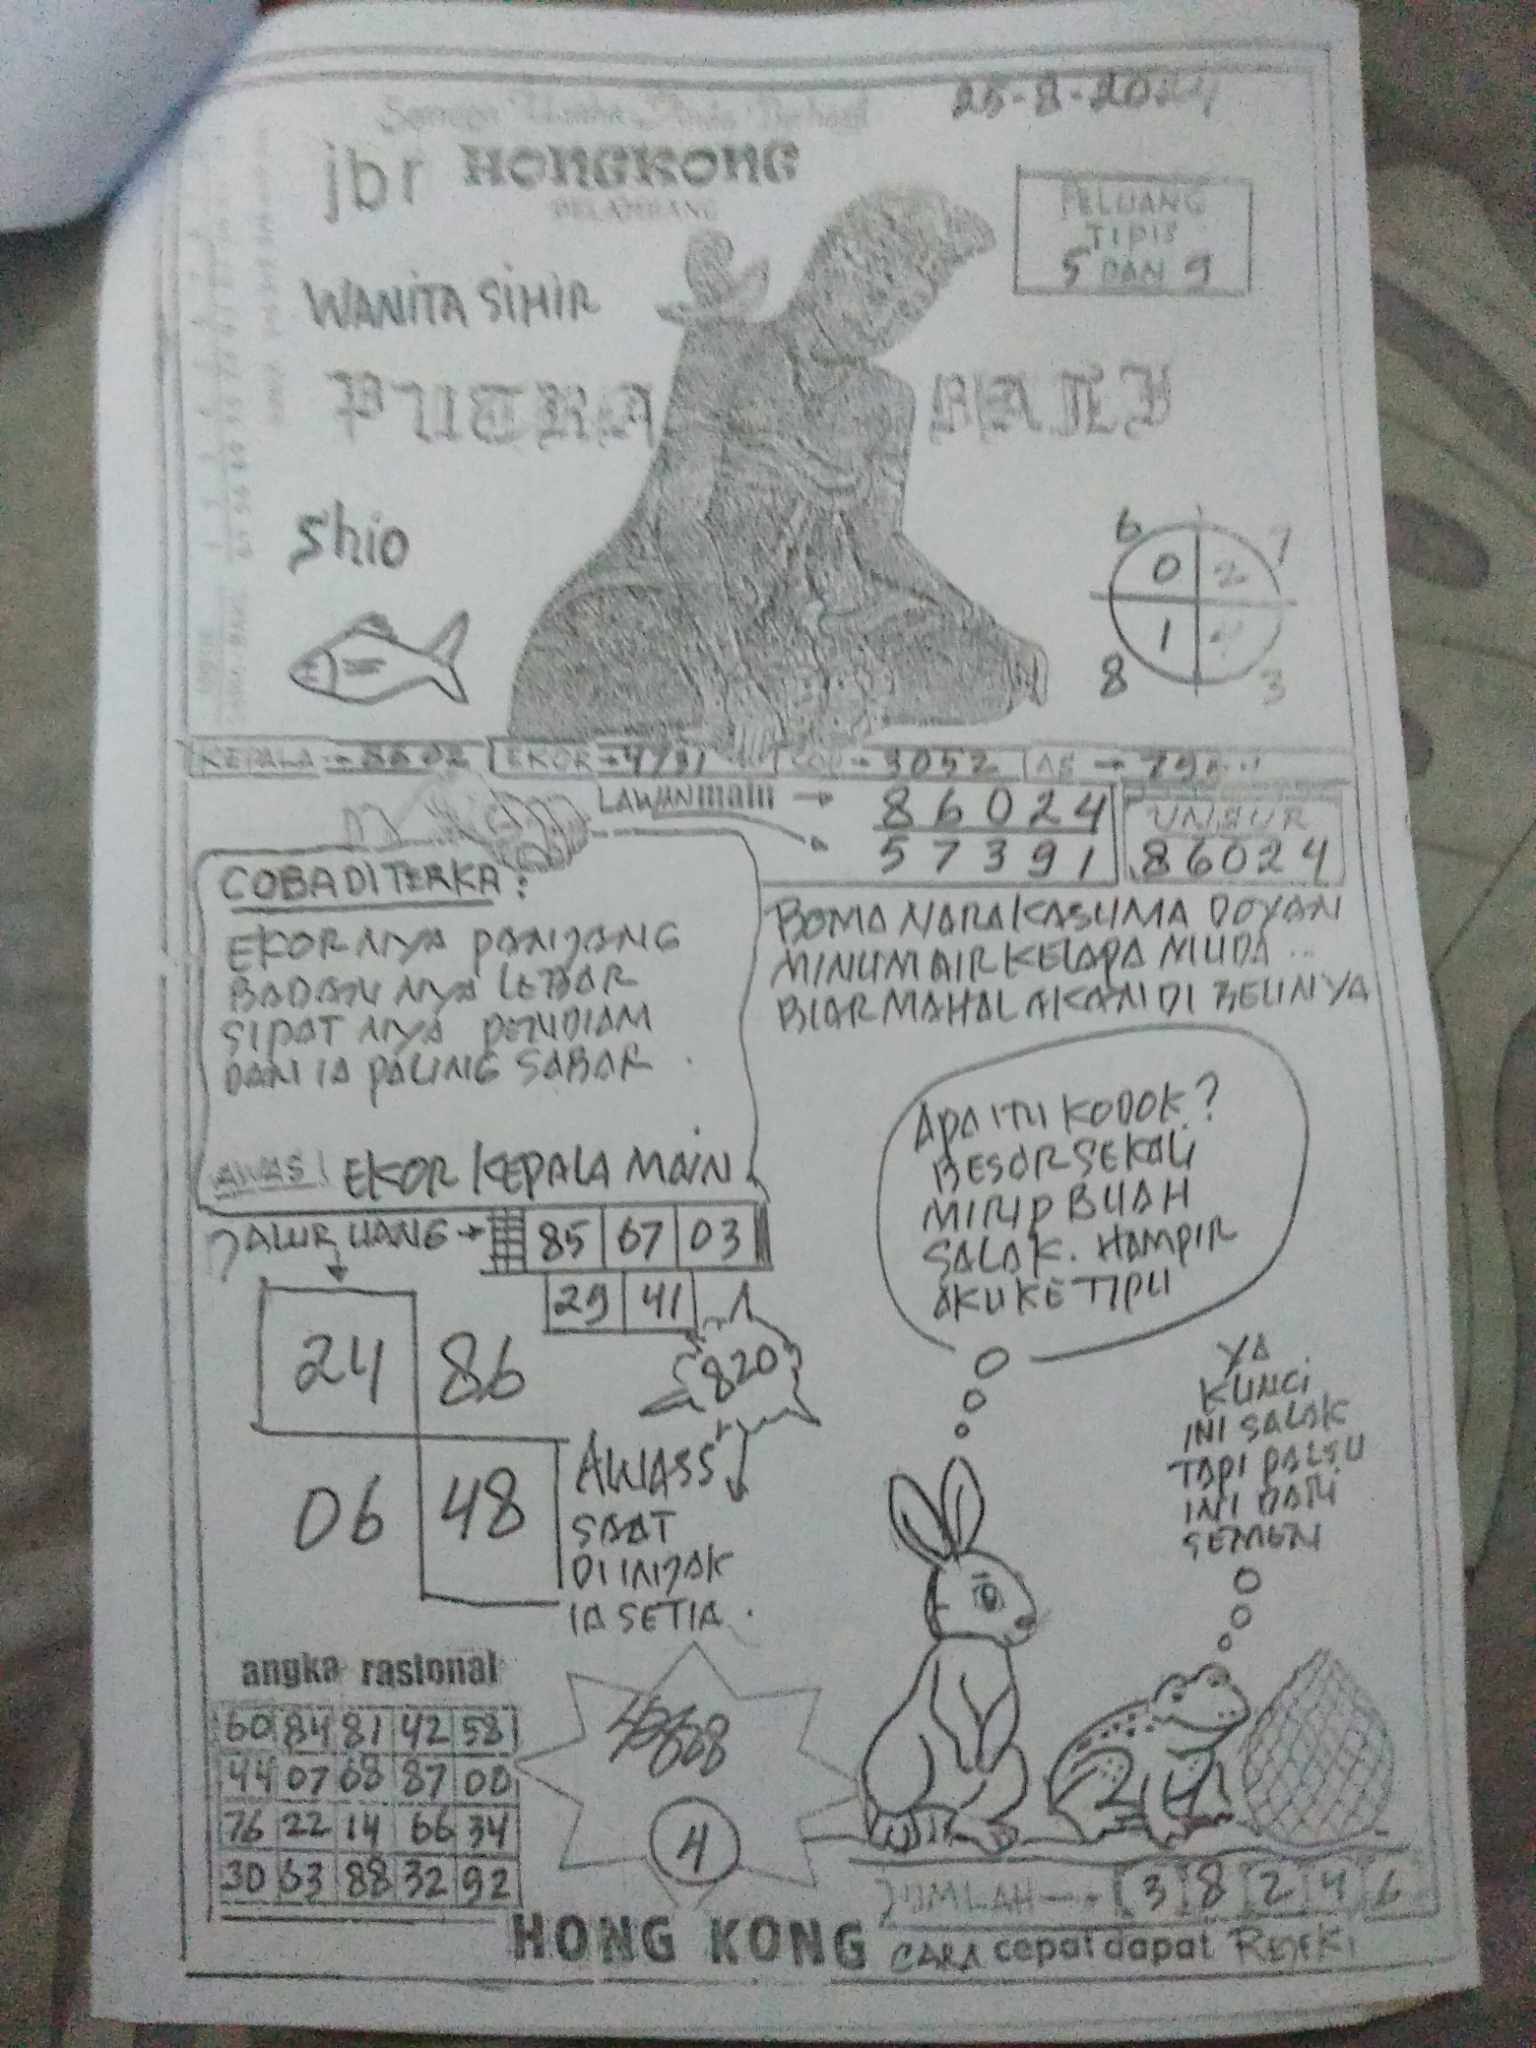 25-8-2024
jbr HONGKONG
PELUANG
TIPIS
5 DAN 9
WANITA SIHIR
PUTRA BALI
Shio
6 7
0 2
1 4
8 3
KEPALA → 8602 EKOR → 4791 COP → 3052 AS →
LAWAN main → 86024
57391
UNSUR
86024
COBA DI TERKA :
EKOR NYA PANJANG
BADAN NYA LEBAR
SIPAT NYA PENDIAM
DAN IA PALING SABAR .
AWAS ! EKOR KEPALA MAIN
BOMA NARAKASUMA DOYAN
MINUM AIR KELAPA MUDA ...
BIAR MAHAL AKAN DI BELINYA
APA ITU KODOK ?
BESAR SEKALI
MIRIP BUAH
SALAK . HAMPIR
AKU KE TIPU
JALUR UANG → 85 67 03
29 41
24 86
06 48
820
AWASS
SAAT
DI INJAK
IA SETIA .
YA
KUNCI
INI SALAK
TAPI PALSU
INI DARI
SEMEN
angka rasional
60 84 81 42 58
44 07 68 87 00
76 22 14 66 34
30 63 88 32 92
4
JUMLAH → 3 8 2 4 6
HONG KONG CARA cepat dapat REJEKI